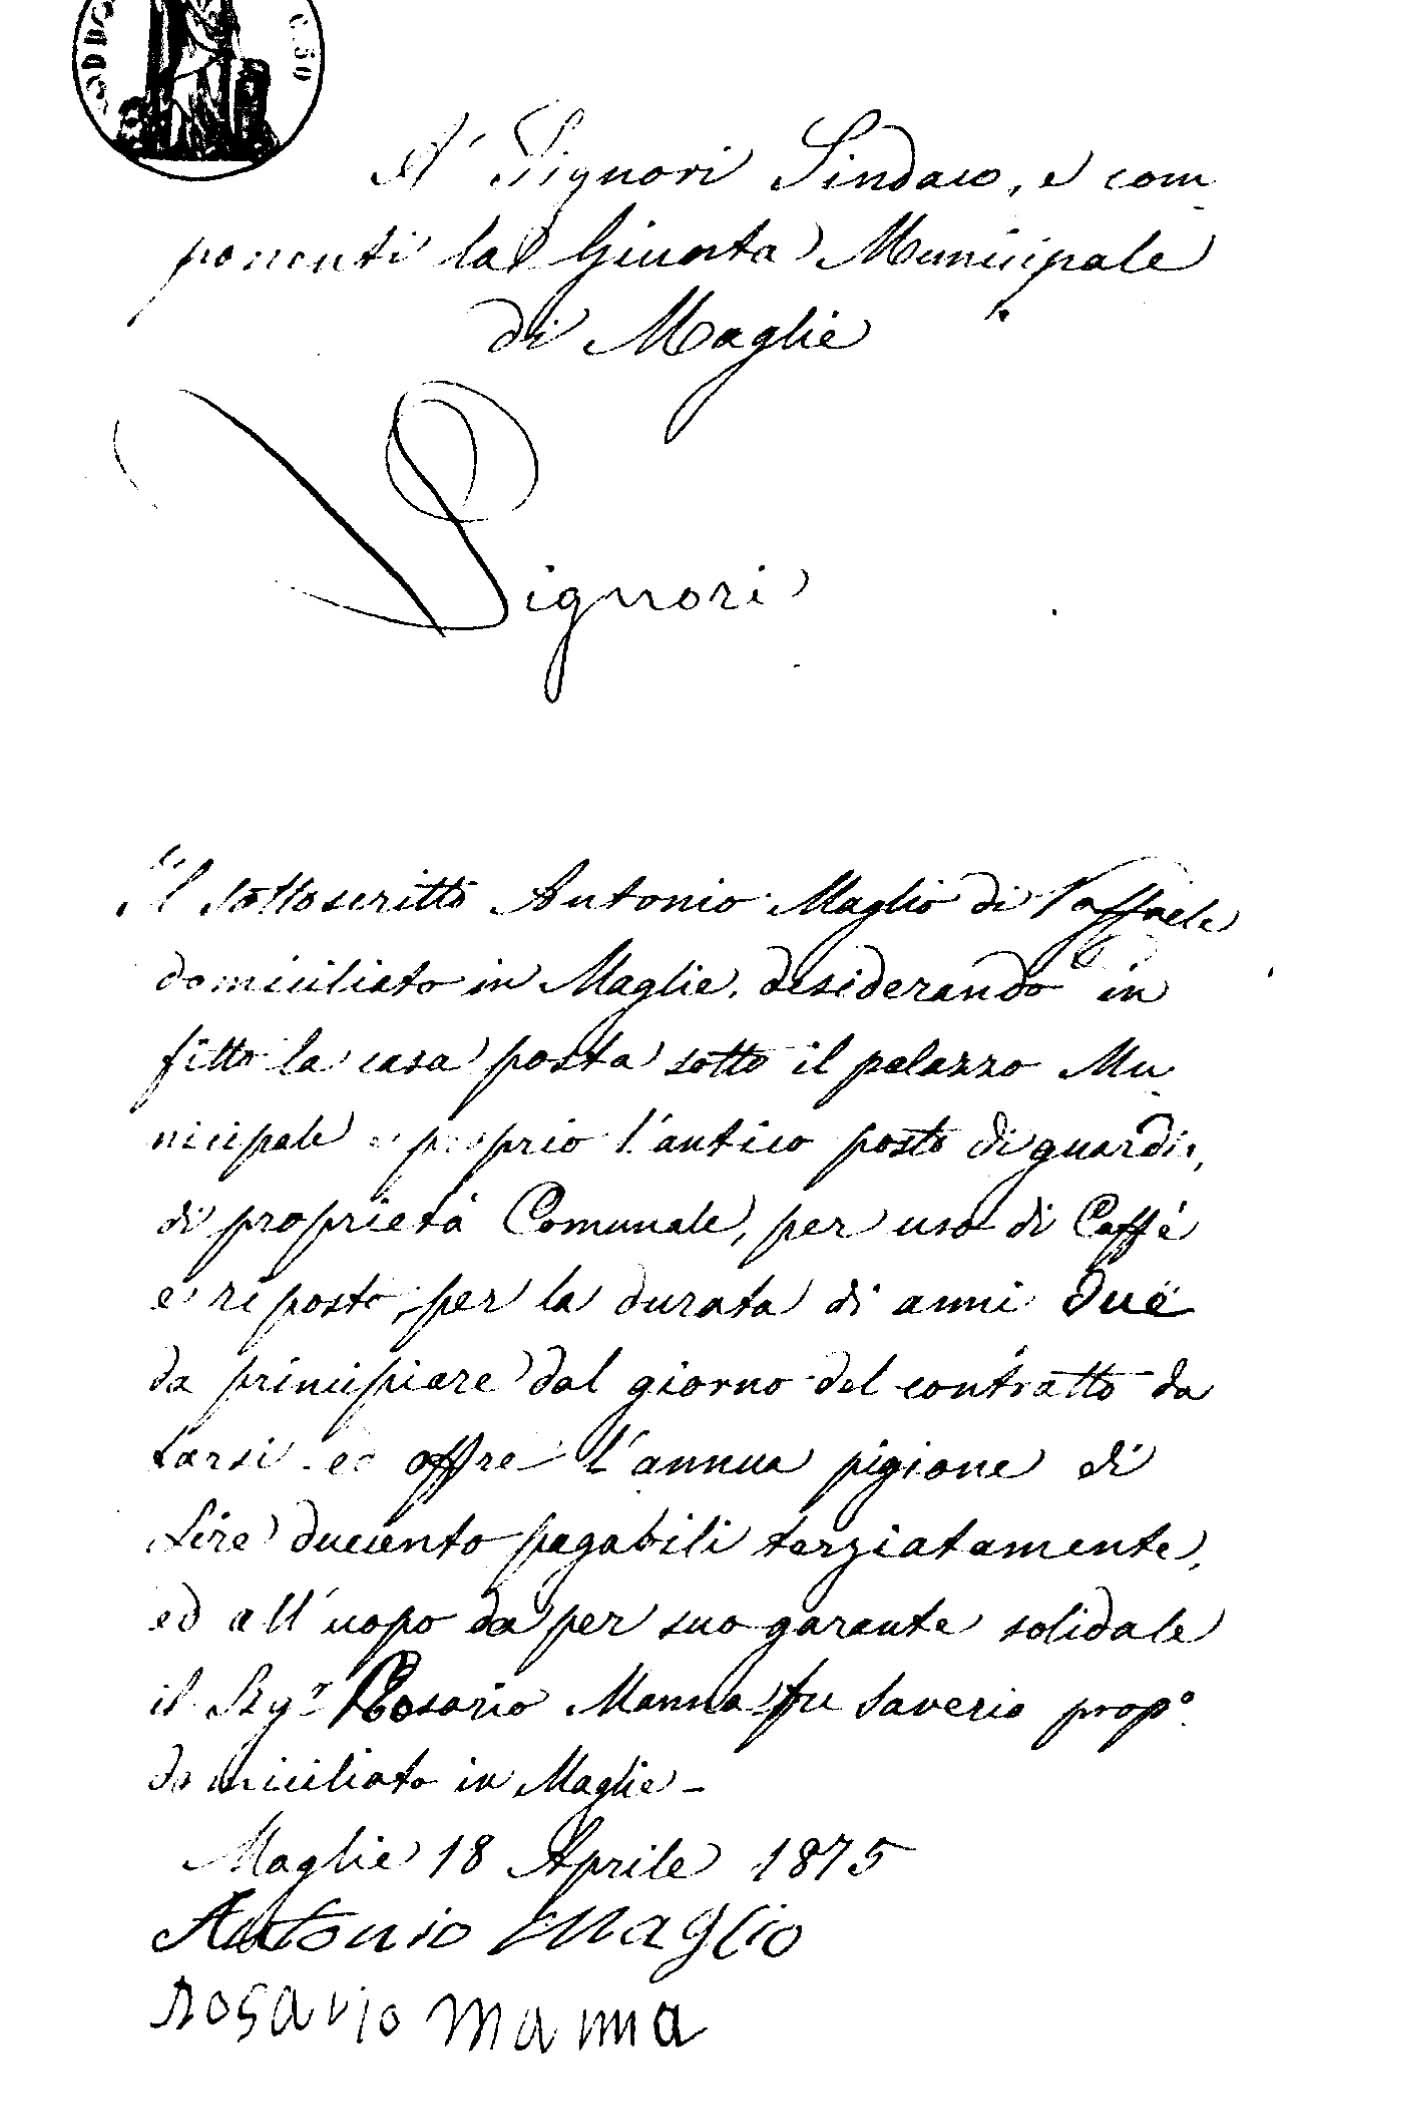 C. 50
A' Signori Sindaco, e com
ponenti la Giunta Municipale
di Maglie
Signori
Il sottoscritto Antonio Maglio di Raffaele
domiciliato in Maglie, desiderando in
fitto la casa posta sotto il palazzo Mu
nicipale e proprio l'antico posto di guardia,
di proprietà Comunale, per uso di Caffè
e riposto, per la durata di anni due
da principiare dal giorno del contratto da
farsi - ed offre l'annua pigione di
Lire duecento pagabili terziatamente,
ed all'uopo da per suo garante solidale
il Sigr Rosario Manna fu Saverio propo.
domiciliato in Maglie -
Maglie 18 Aprile 1875
Antonio Maglio
Rosario Manna